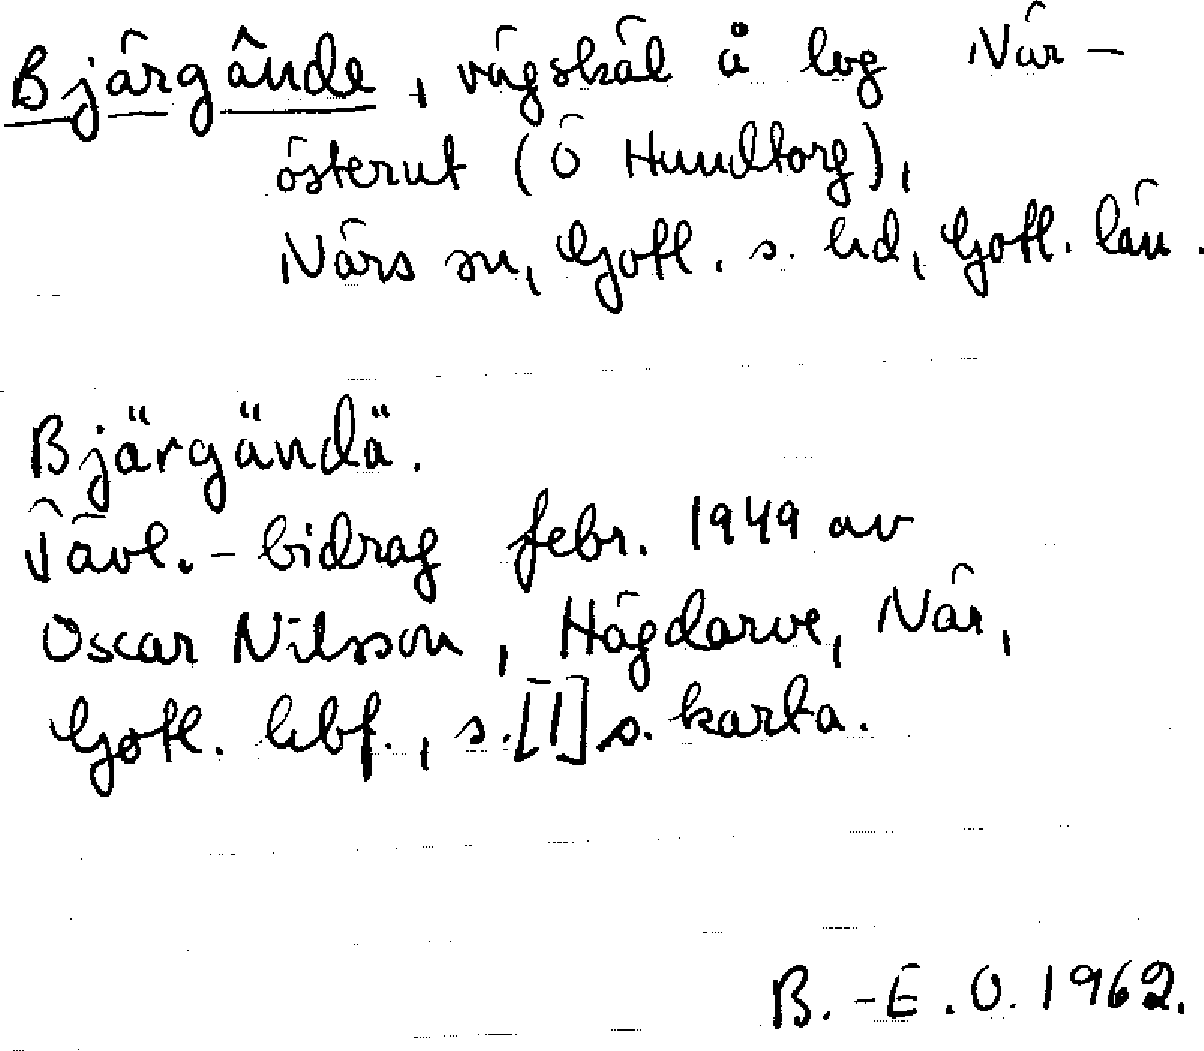 Bjärgände, vägskäl å väg När-
österut (Ö Hundlorg),
Närs sn, Gotl. s. hd, Gotl. län.
Bjärgändä.
Tävl.-bidrag febr. 1949 av
Oscar Nilsson, Hägdarve, När,
Gotl. hbf., s.[1] s. karta.
B.-E. O. 1962.